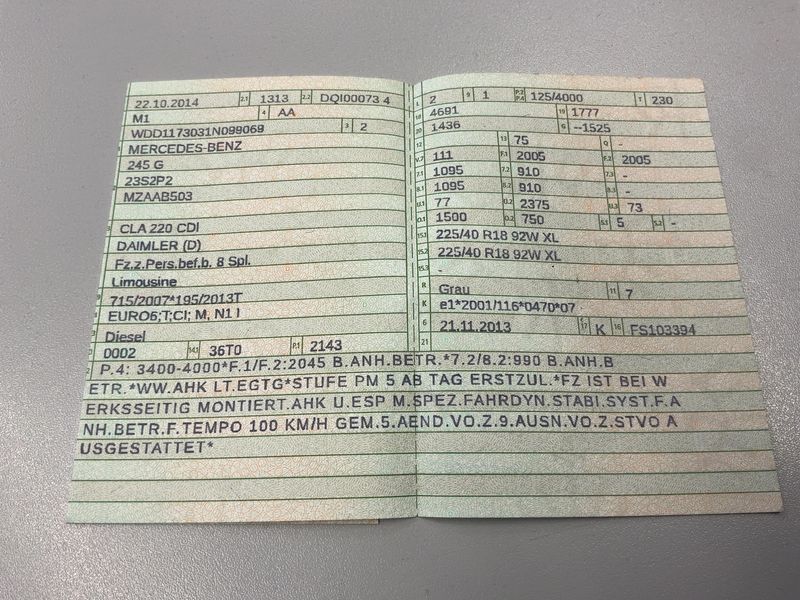 22.10.2014 2.1 1313 2.2 DQI00073 4
M1 4 AA
WDD1173031N099069 3 2
MERCEDES-BENZ
245 G
23S2P2
MZAAB503
CLA 220 CDI
DAIMLER (D)
Fz.z.Pers.bef.b. 8 Spl.
Limousine
715/2007*195/2013T
EURO6;T;CI; M, N1 I
Diesel
0002 14.1 36T0 P.1 2143
L 2 9 1 P.2 P.4 125/4000 T 230
18 4691 19 1777
20 1436 G --1525
12 13 75 Q -
V.7 111 F.1 2005 F.2 2005
7.1 1095 7.2 910 7.3 -
8.1 1095 8.2 910 8.3 -
U.1 77 U.2 2375 U.3 73
O.1 1500 O.2 750 S.1 5 S.2 -
15.1 225/40 R18 92W XL
15.2 225/40 R18 92W XL
15.3 -
R Grau 11 7
K e1*2001/116*0470*07
6 21.11.2013 17 K 16 FS103394
21
P.4: 3400-4000*F.1/F.2:2045 B.ANH.BETR.*7.2/8.2:990 B.ANH.B
ETR.*WW.AHK LT.EGTG*STUFE PM 5 AB TAG ERSTZUL.*FZ IST BEI W
ERKSSEITIG MONTIERT.AHK U.ESP M.SPEZ.FAHRDYN.STABI.SYST.F.A
NH.BETR.F.TEMPO 100 KM/H GEM.5.AEND.VO.Z.9.AUSN.VO.Z.STVO A
USGESTATTET*